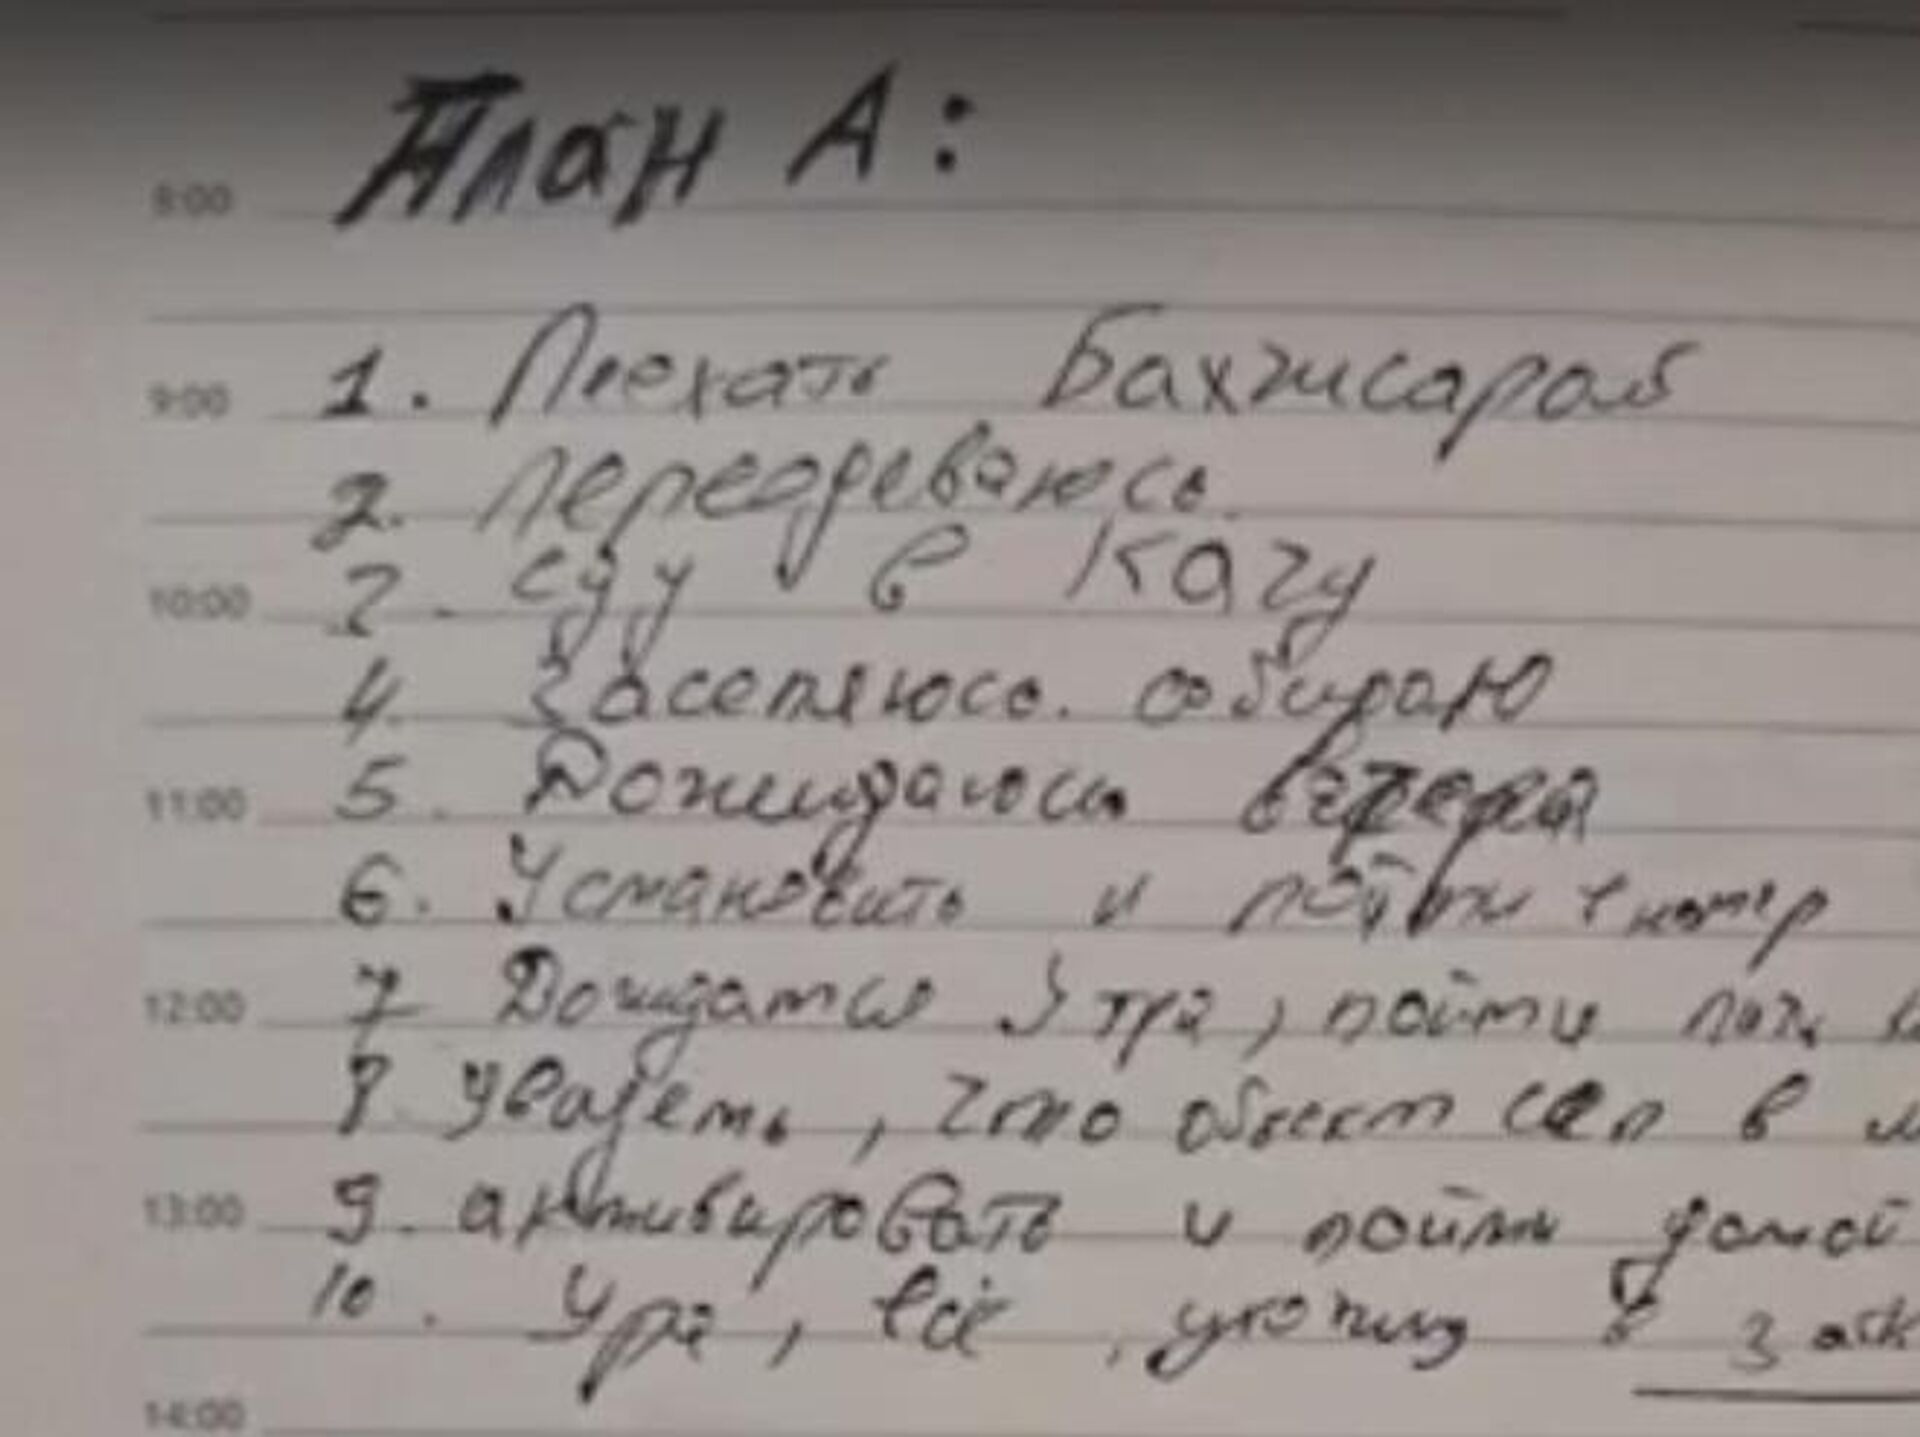 План А:
8:00
1. Поехать Бахчисарай
9:00
2. переодеваюсь.
3. еду в Качу
10:00
4. Заселяюсь. собираю
5. Дожидаюсь вечера
11:00
6. Установить и пойти в номер
7 Дождаться Утра, пойти
12:00
8 увидеть, что объект сел в
9. активировать и пойти домой
13:00
10. Ура, всё, ухожу в
14:00